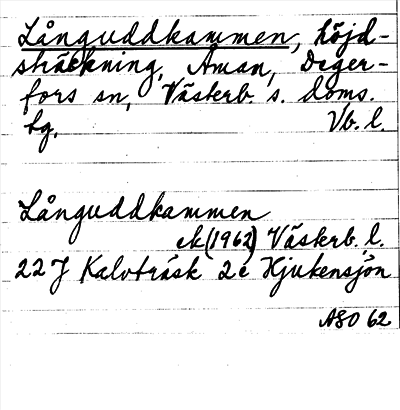 Långuddkammen, höjd-
sträckning, Åman, Deger-
fors sn, Västerb. s. doms.
tg. Vb. l.
Långuddkammen
ek (1962) Västerb. l.
22 J Kalvträsk 2e Hjukensjön
ASO 62